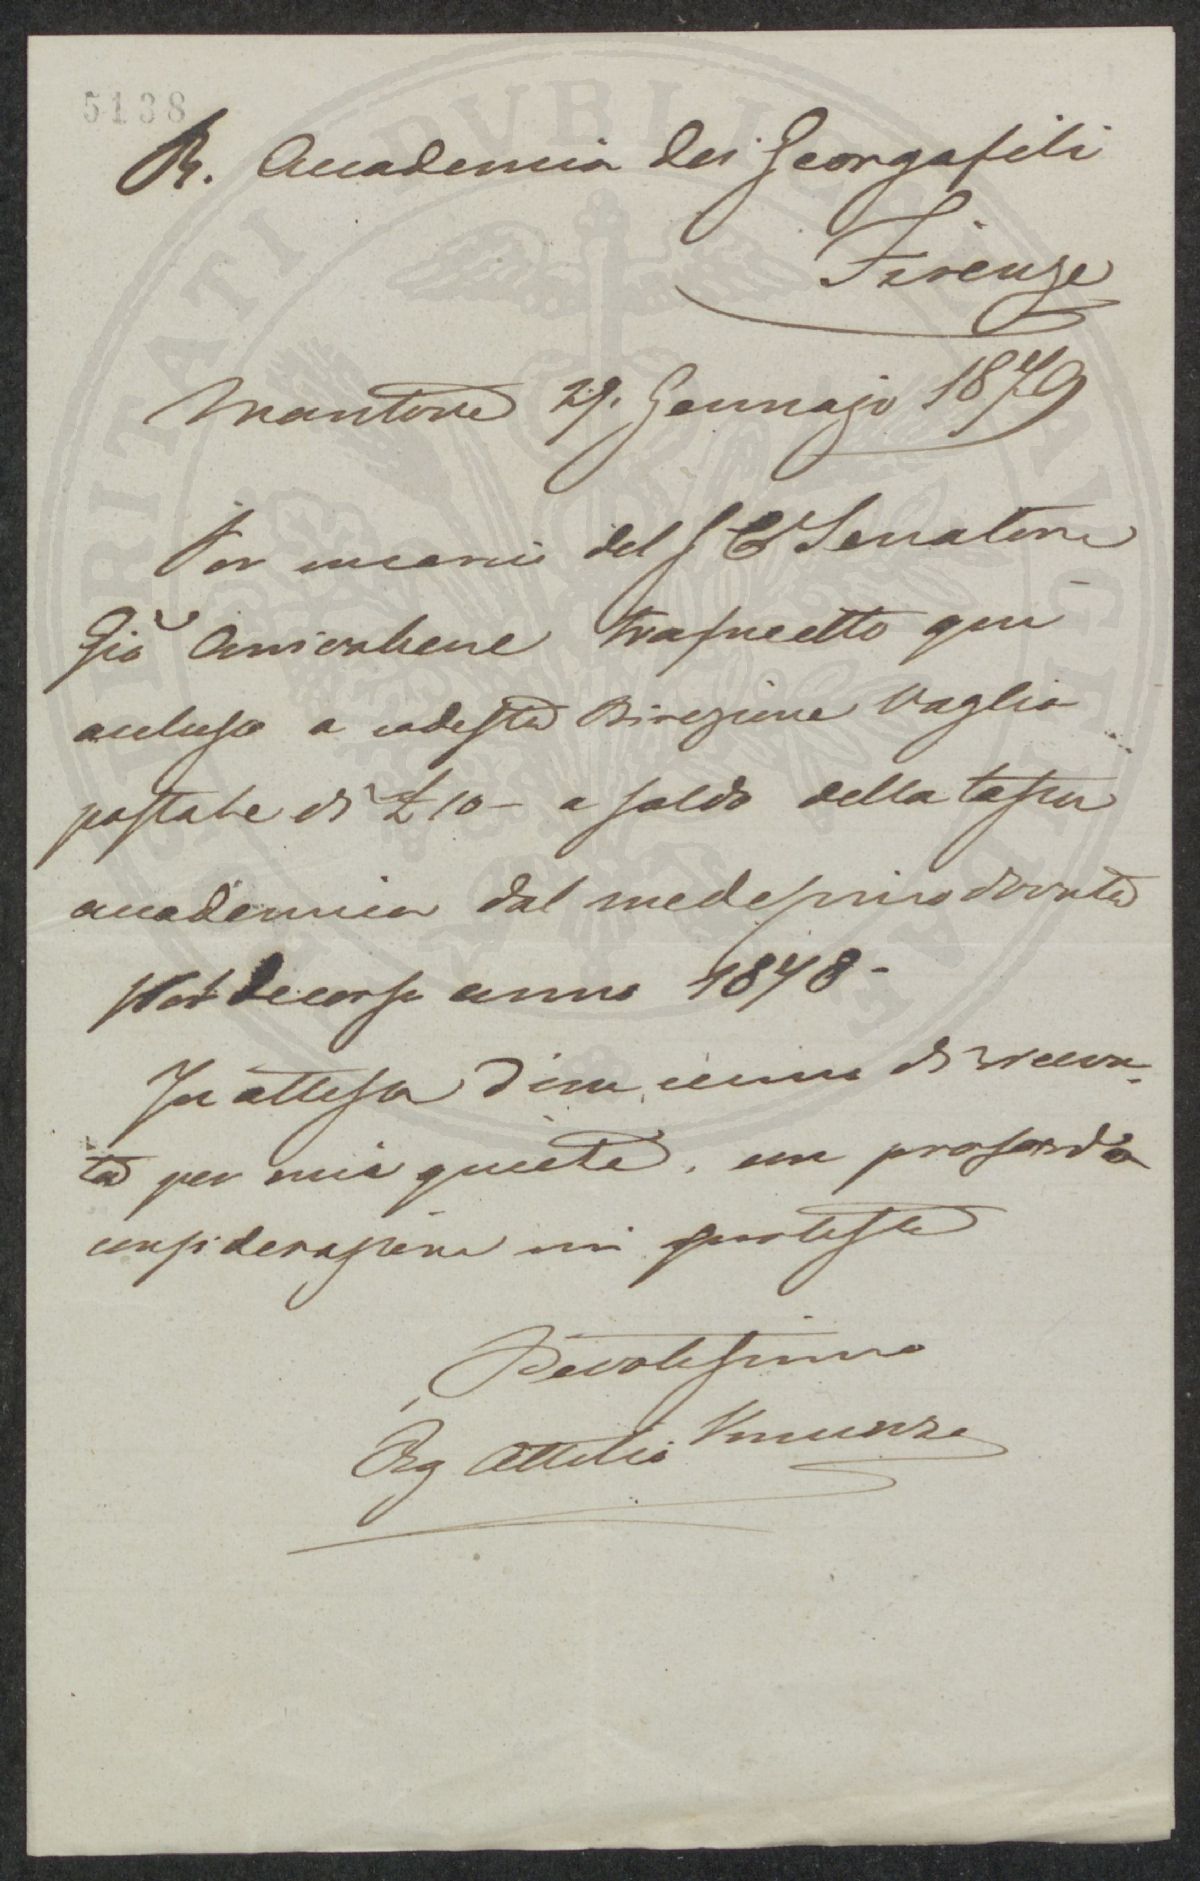 5138
R. Accademia dei Georgofili
Firenze
Mantova 29. Gennajo 1879
Per incarico del S. Cte Senatore
Gio Arrivabene trasmetto qui
accluso a codesta Direzione Vaglia
postale di £ 10 - a saldo della tassa
accademica dal medesimo dovuta
decorso anno 1878 -
In attesa d'un cenno di ricevu-
ta per mia quiete, con profonda
considerazione mi protesto
Devotissimo
Rag Attilio